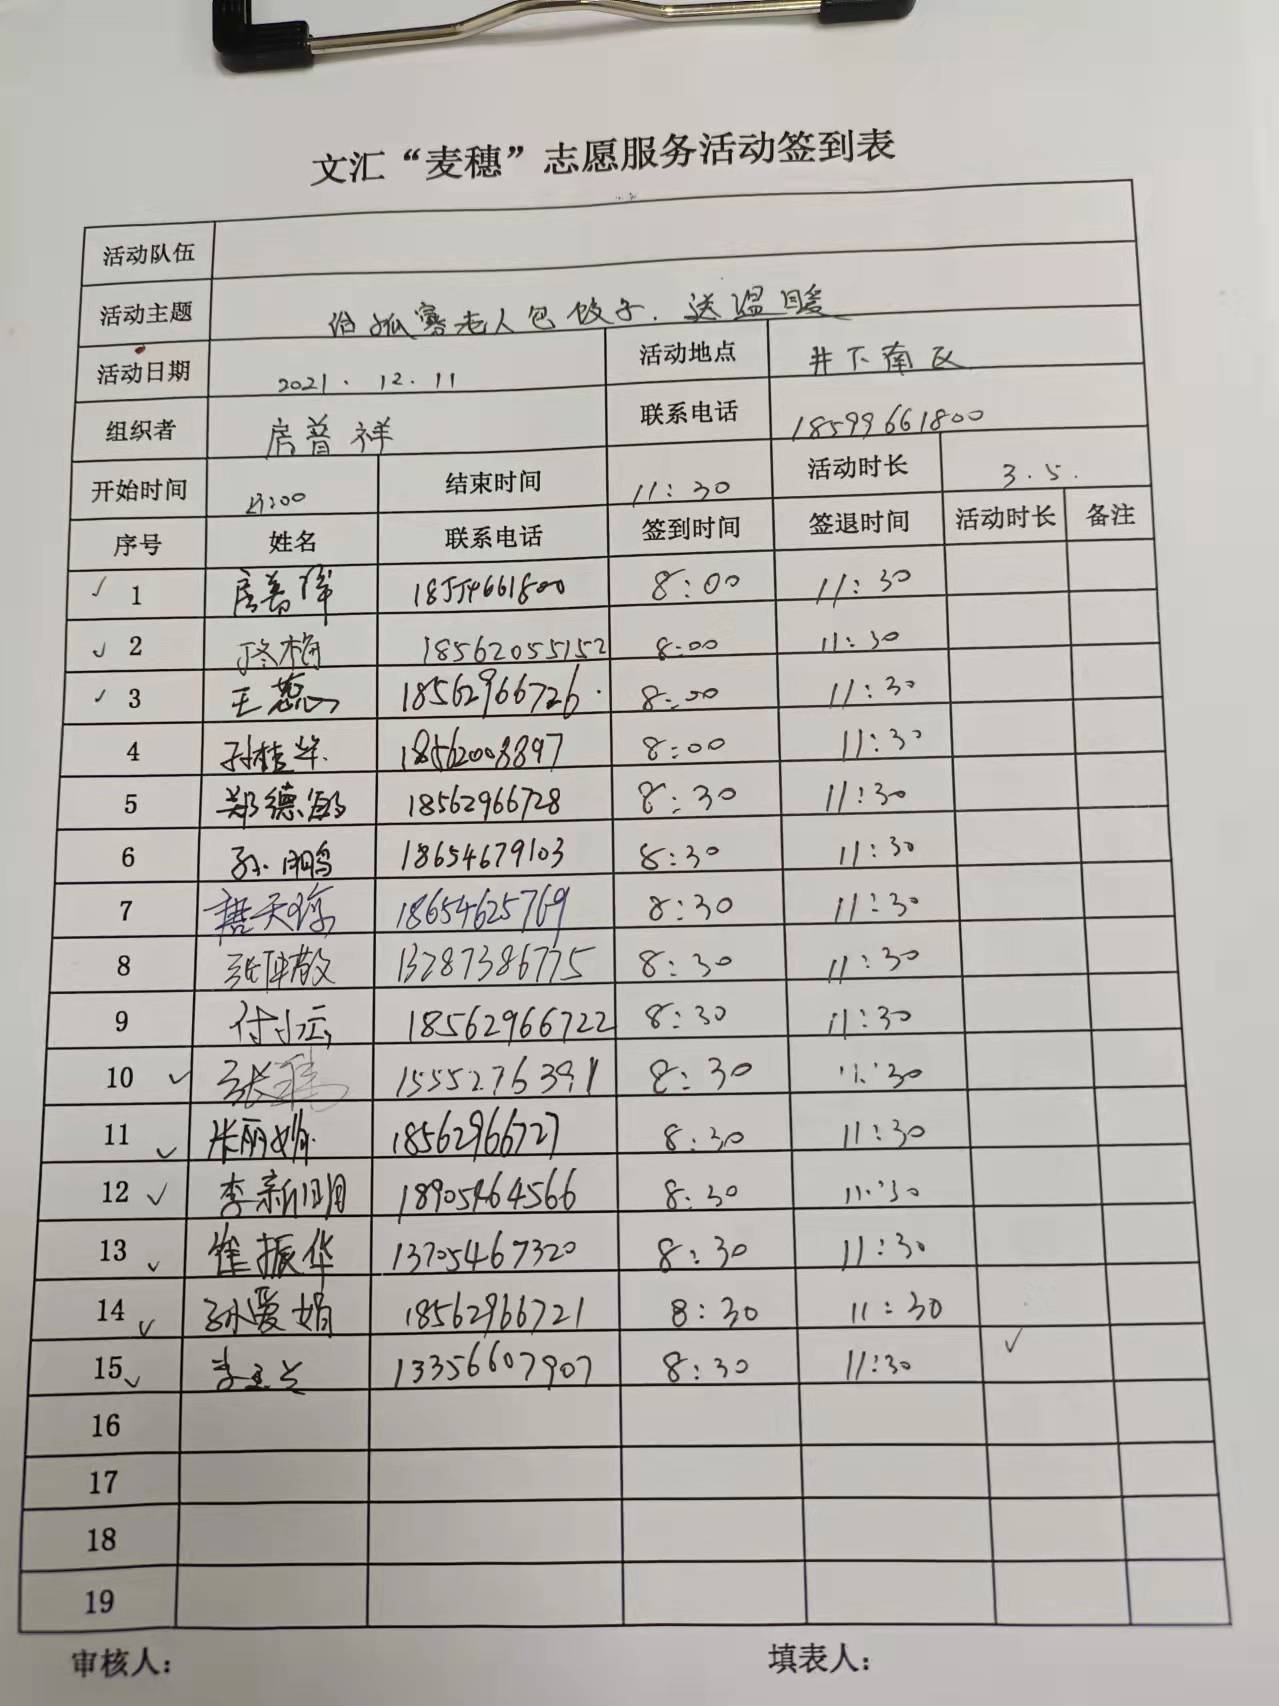 文汇“麦穗”志愿服务活动签到表
活动队伍
活动主题 给孤寡老人包饺子.送温暖
活动日期 2021.12.11 活动地点 井下南区
组织者 房普祥 联系电话 18599661800
开始时间 结束时间 11:30 活动时长 3.5.
序号 姓名 联系电话 签到时间 签退时间 活动时长 备注
✓ 1 房普祥 8:00 11:30
✓ 2 佟梅 18562055152 8:00 11:30
✓ 3 王蕊 18562966726 8:00 11:30
4 孙桂华 18562008897 8:00 11:30
5 郑德 18562966728 8:30 11:30
6 孙鹏 18654679103 8:30 11:30
7 18654625769 8:30 11:30
8 13287386775 8:30 11:30
9 付小云 18562966722 8:30 11:30
10 ✓ 张 15552763991 8:30 11:30
11 ✓ 米丽娟 18562966727 8:30 11:30
12 ✓ 李新明 18905464566 8:30 11:30
13 ✓ 崔振华 13705467320 8:30 11:30
14 ✓ 孙爱娟 18562966721 8:30 11:30
15 ✓ 李 13356607907 8:30 11:30 ✓
16
17
18
19
审核人： 填表人：